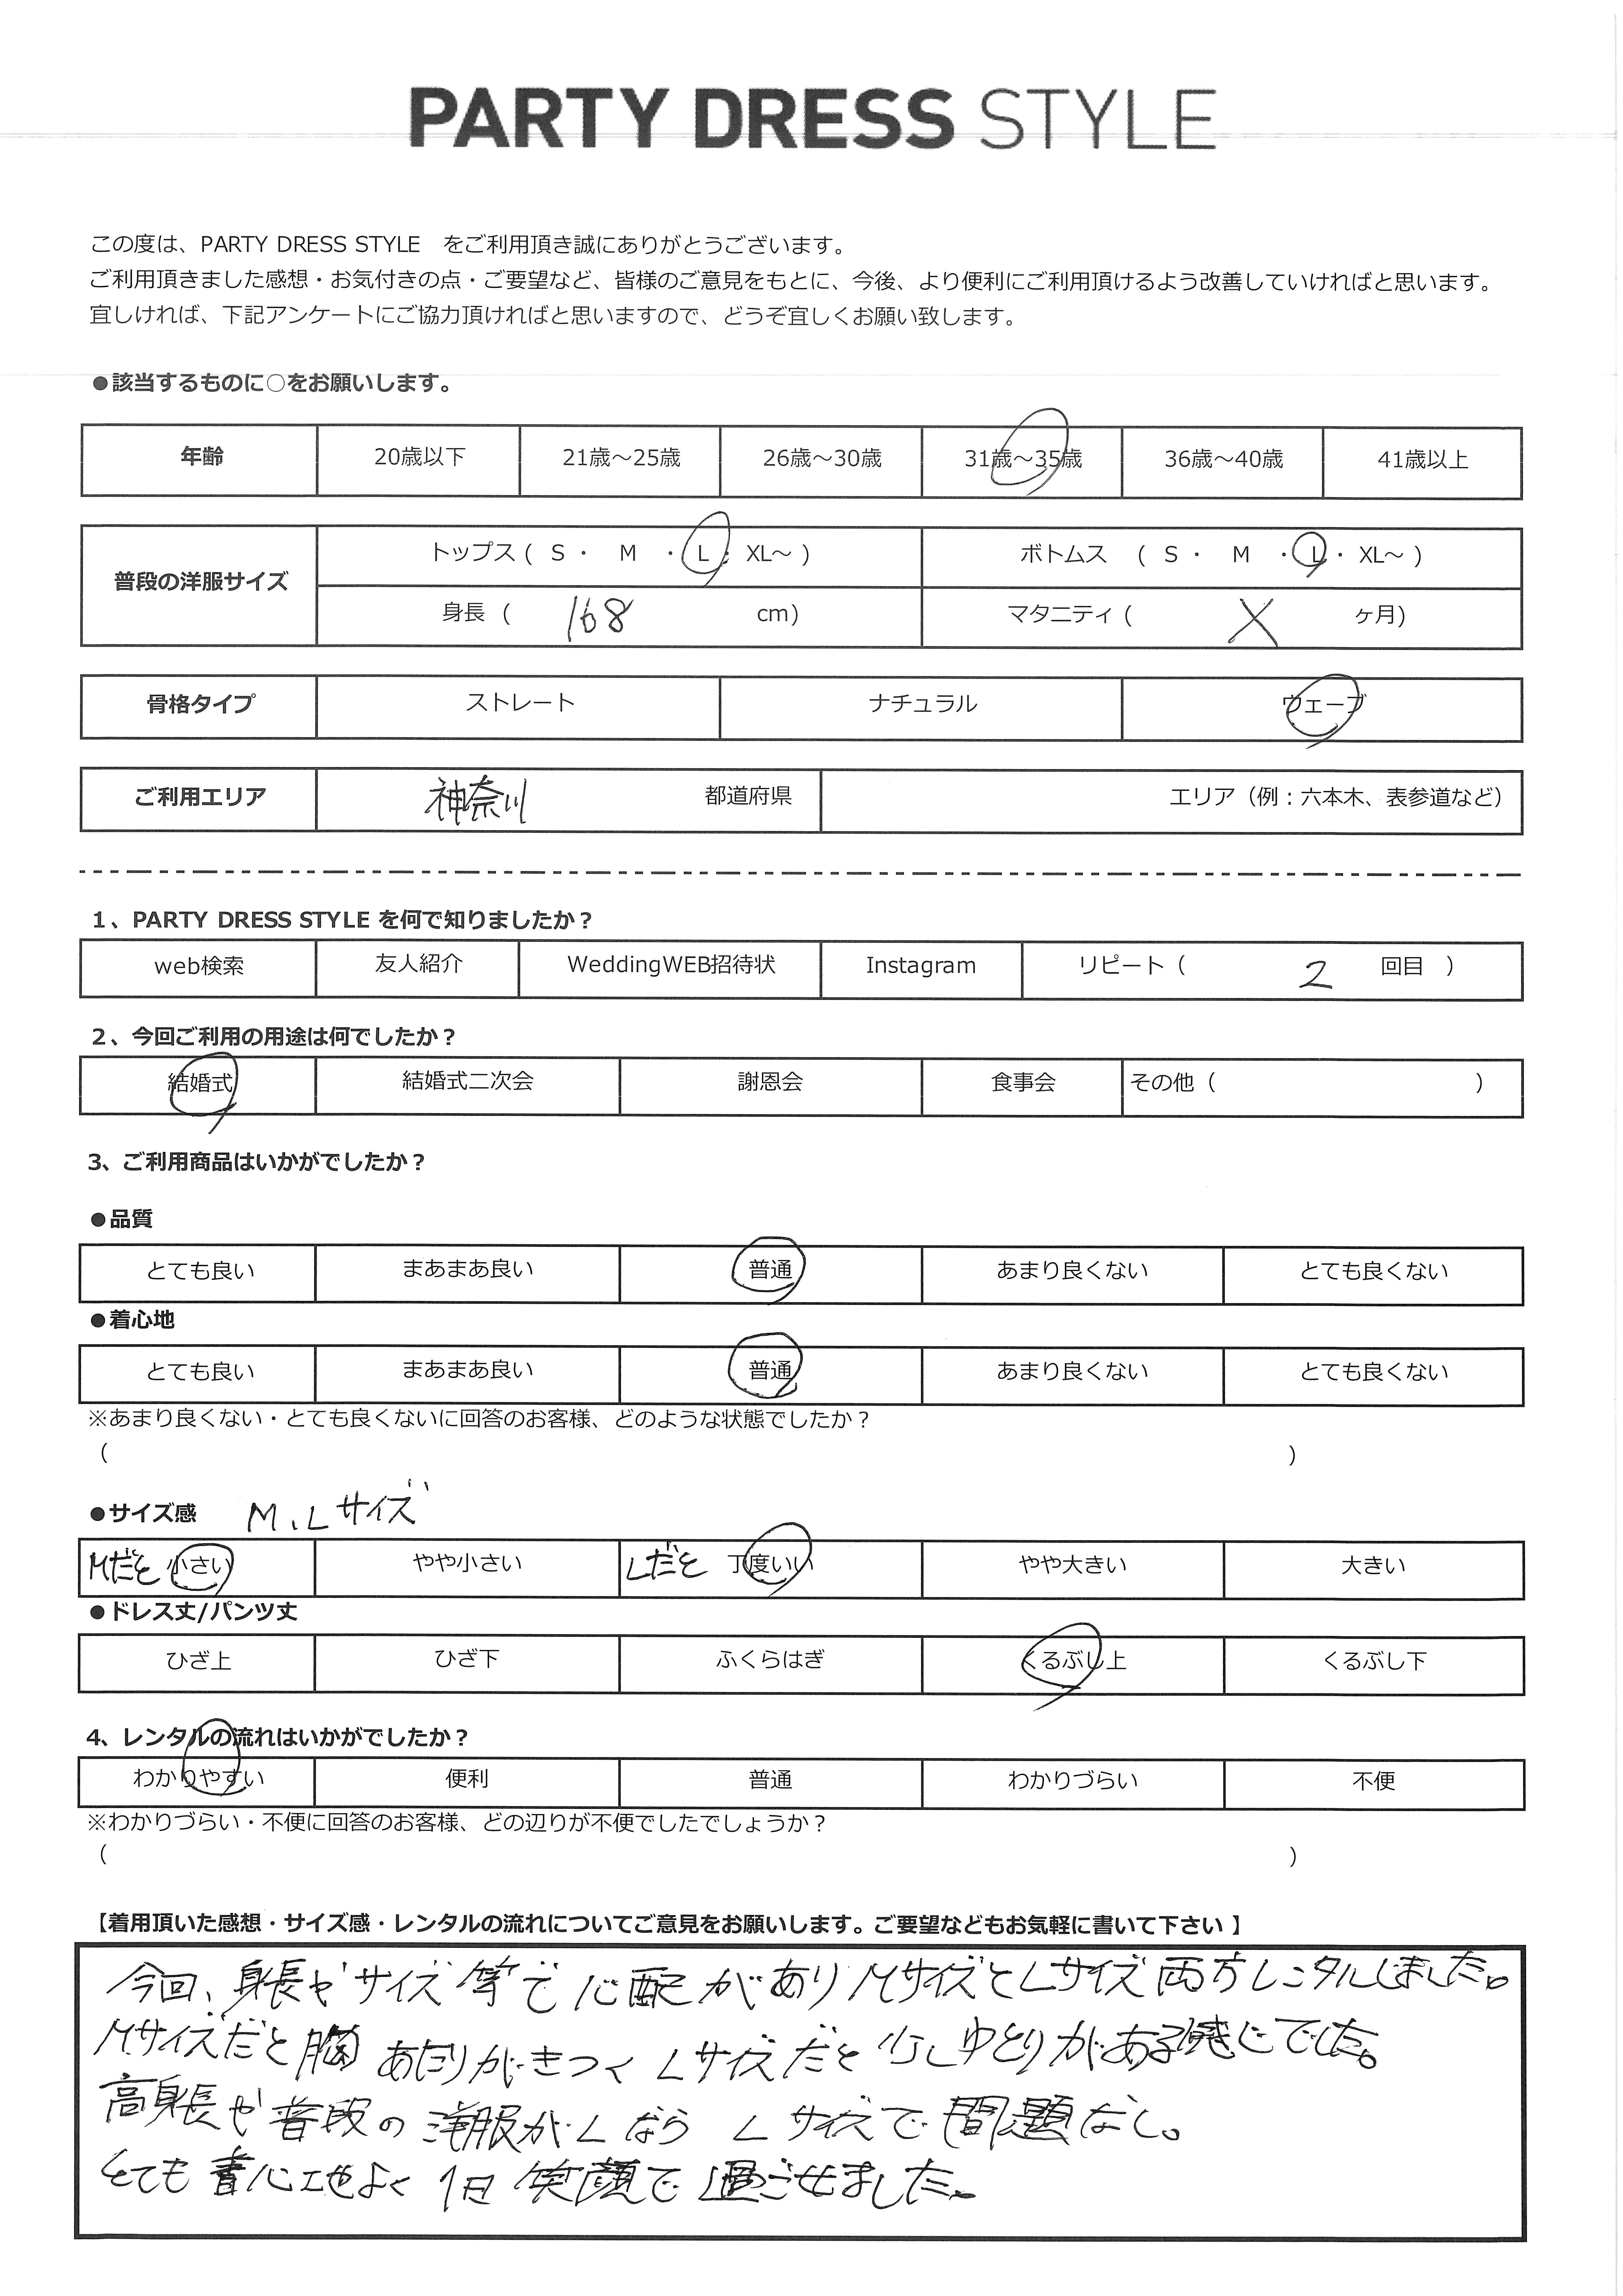 PARTY DRESS STYLE
この度は、PARTY DRESS STYLE をご利用頂き誠にありがとうございます。
ご利用頂きました感想・お気付きの点・ご要望など、皆様のご意見をもとに、今後、より便利にご利用頂けるよう改善していければと思います。
宜しければ、下記アンケートにご協力頂ければと思いますので、どうぞ宜しくお願い致します。
●該当するものに○をお願いします。
年齢 20歳以下 21歳～25歳 26歳～30歳 31歳～35歳 36歳～40歳 41歳以上
普段の洋服サイズ トップス ( S ・ M ・ L ・ XL～ ) ボトムス ( S ・ M ・ L ・ XL～ )
身長 ( 168 cm) マタニティ ( X ヶ月)
骨格タイプ ストレート ナチュラル ウェーブ
ご利用エリア 神奈川 都道府県 エリア（例：六本木、表参道など）
1、PARTY DRESS STYLE を何で知りましたか？
web検索 友人紹介 WeddingWEB招待状 Instagram リピート（ 2 回目 ）
2、今回ご利用の用途は何でしたか？
結婚式 結婚式二次会 謝恩会 食事会 その他（ ）
3、ご利用商品はいかがでしたか？
●品質
とても良い まあまあ良い 普通 あまり良くない とても良くない
●着心地
とても良い まあまあ良い 普通 あまり良くない とても良くない
※あまり良くない・とても良くないに回答のお客様、どのような状態でしたか？
( )
●サイズ感 M、Lサイズ
Mだと 小さい やや小さい Lだと 丁度いい やや大きい 大きい
●ドレス丈/パンツ丈
ひざ上 ひざ下 ふくらはぎ くるぶし上 くるぶし下
4、レンタルの流れはいかがでしたか？
わかりやすい 便利 普通 わかりづらい 不便
※わかりづらい・不便に回答のお客様、どの辺りが不便でしたでしょうか？
( )
【着用頂いた感想・サイズ感・レンタルの流れについてご意見をお願いします。ご要望などもお気軽に書いて下さい 】
今回、身長やサイズ等で心配がありMサイズとLサイズ両方レンタルしました。
Mサイズだと胸あたりがきつくLサイズだと少しゆとりがある感じでした。
高身長や普段の洋服がLならLサイズで問題なし。
とても書心地よく1日笑顔で過ごせました。